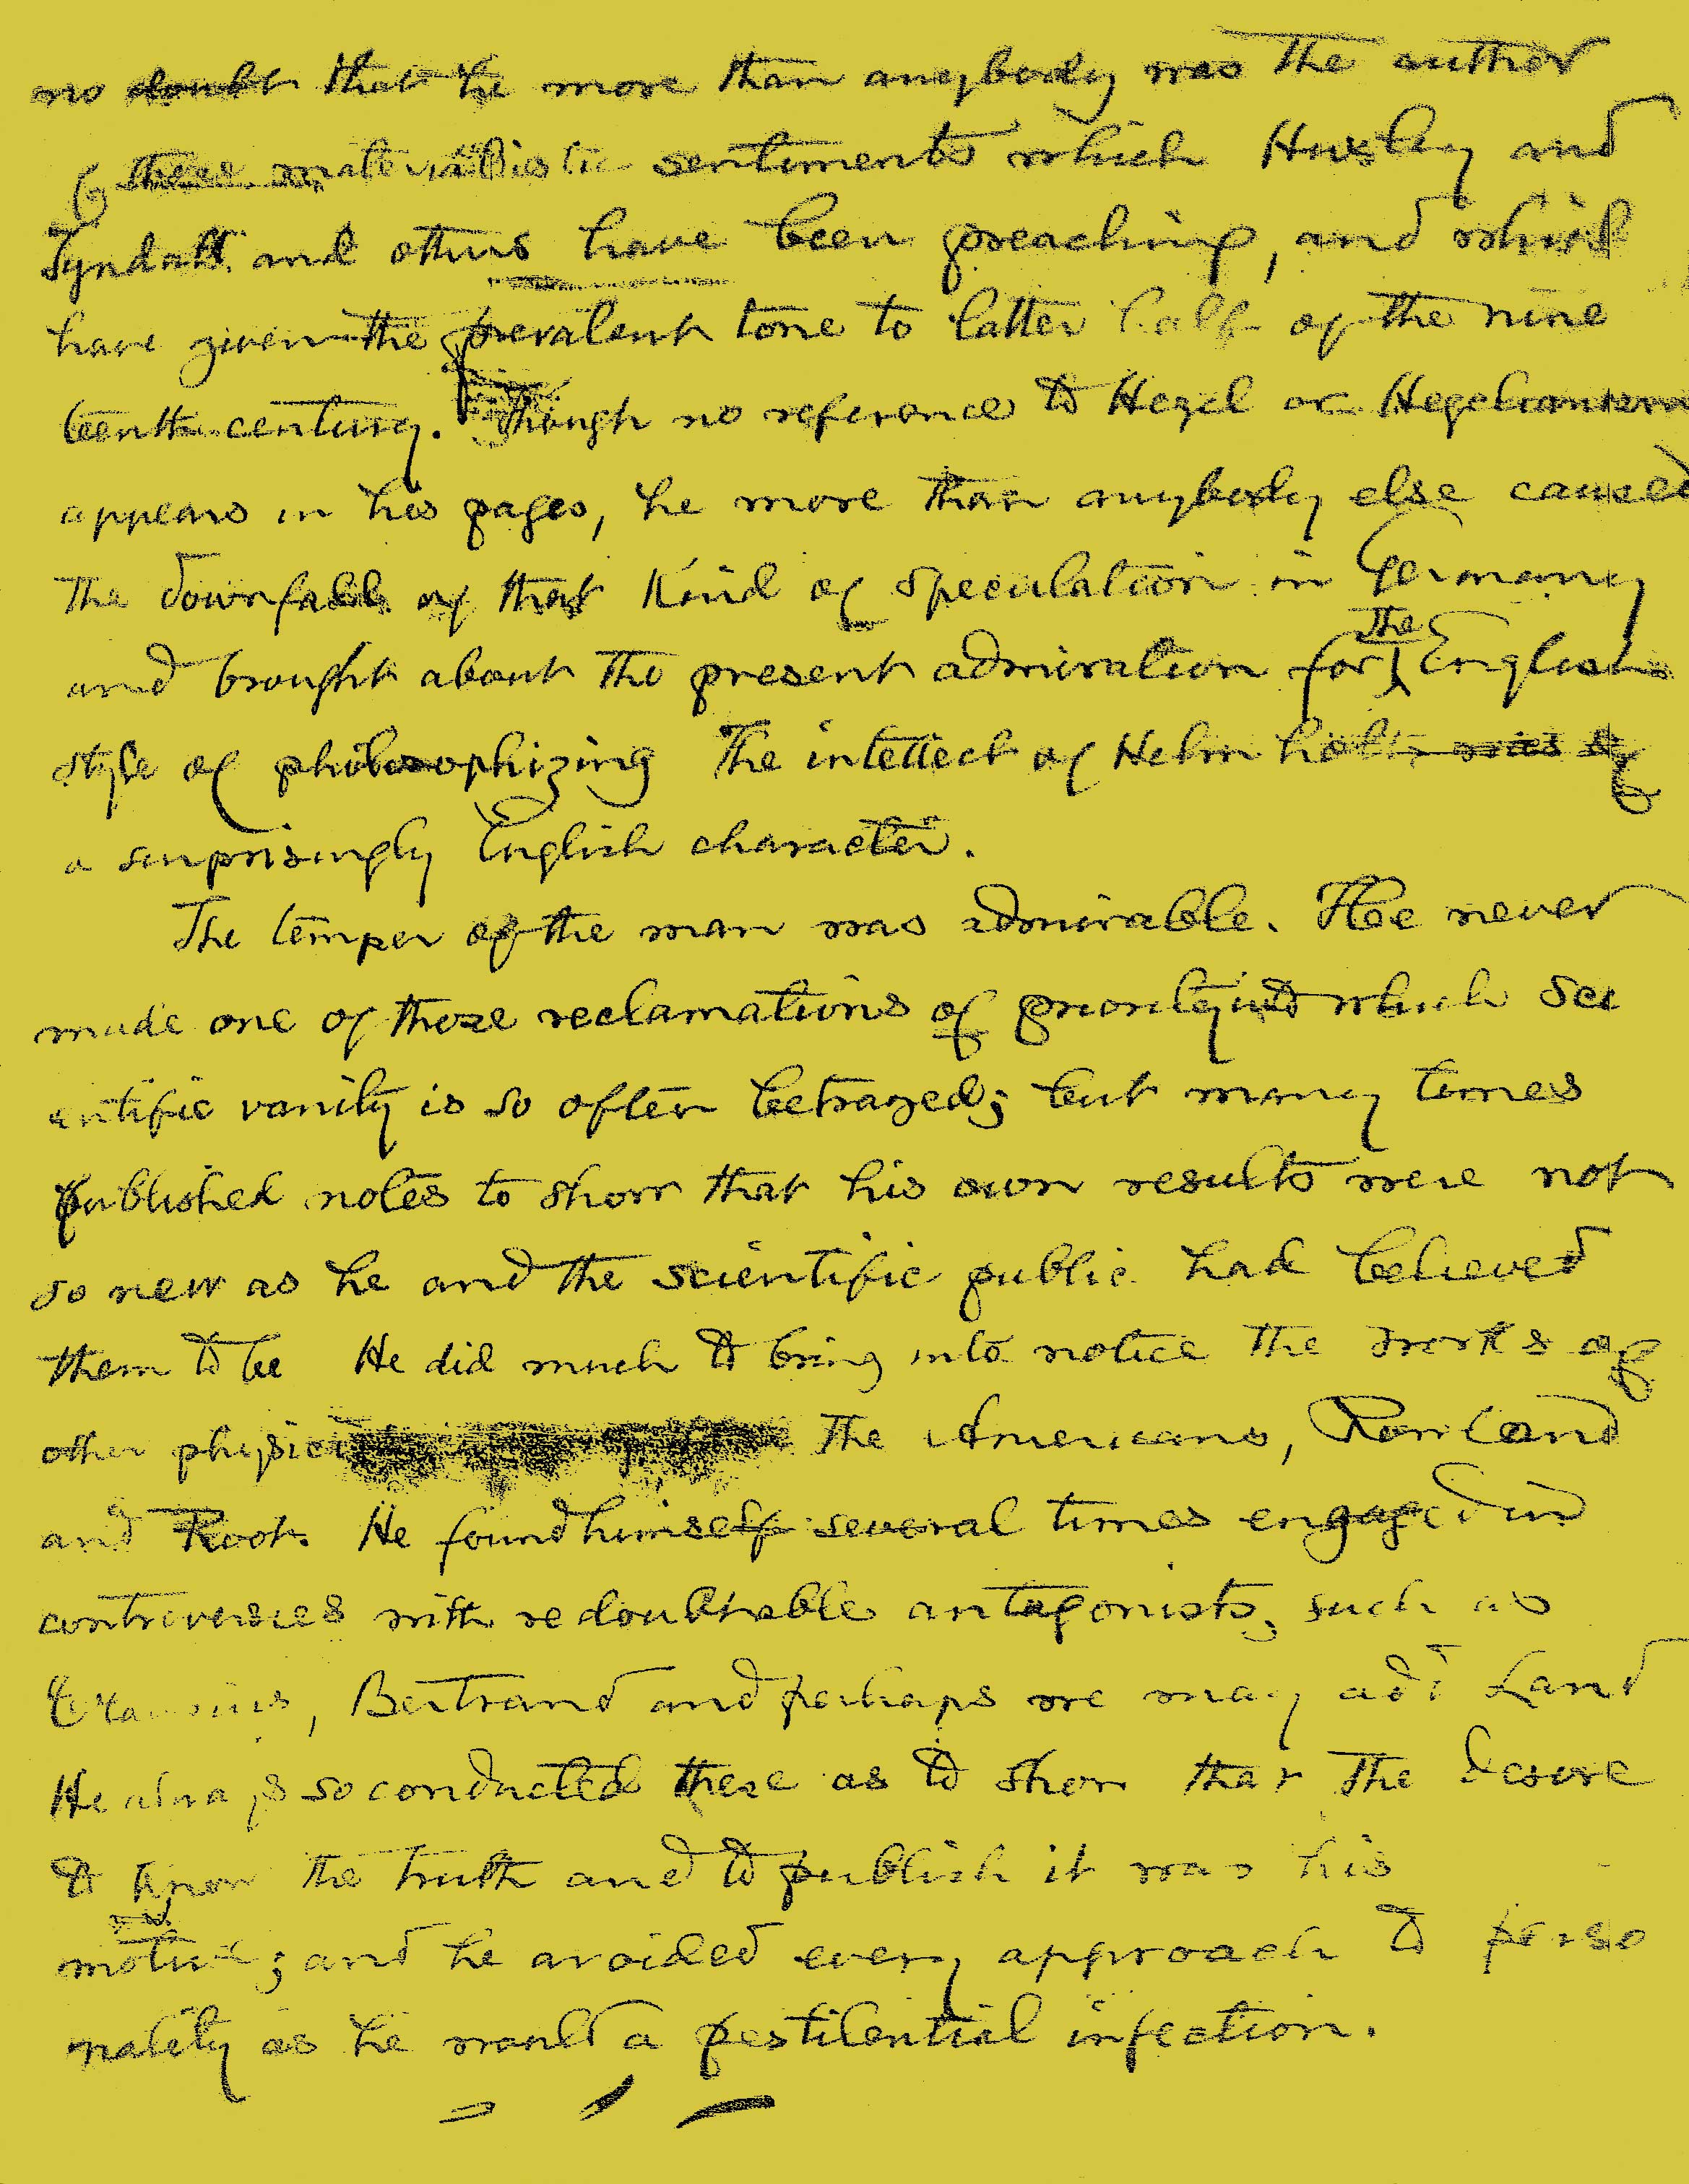 no doubt that he more than anybody was the author
of these materialistic sentiments which Huxley and
Tyndall and others have been preaching, and which
have given the prevalent tone to latter half of the nine
teenth century. Though no reference to Hegel or Hegelianism
appears in his pages, he more than anybody else caused
the downfall of that kind of speculation in Germany
and brought about the present admiration for the English
style of philosophizing The intellect of Helmholtz was of
a surprisingly English character.
The temper of the man was admirable. He never
made one of those reclamations of priority into which sci
entific vanity is so often betrayed; but many times
published notes to show that his own results were not
so new as he and the scientific public had believed
them to be He did much to bring into notice the works of
other the Americans, Rowland
and Rood. He found himself several times engaged in
controversies with redoubtable antagonists, such as
Clausius, Bertrand and perhaps we may add Land
He always so conducted these as to show that the desire
to know the truth and to publish it was his
motive; and he avoided every approach to perso
nality as he would a pestilential infection.